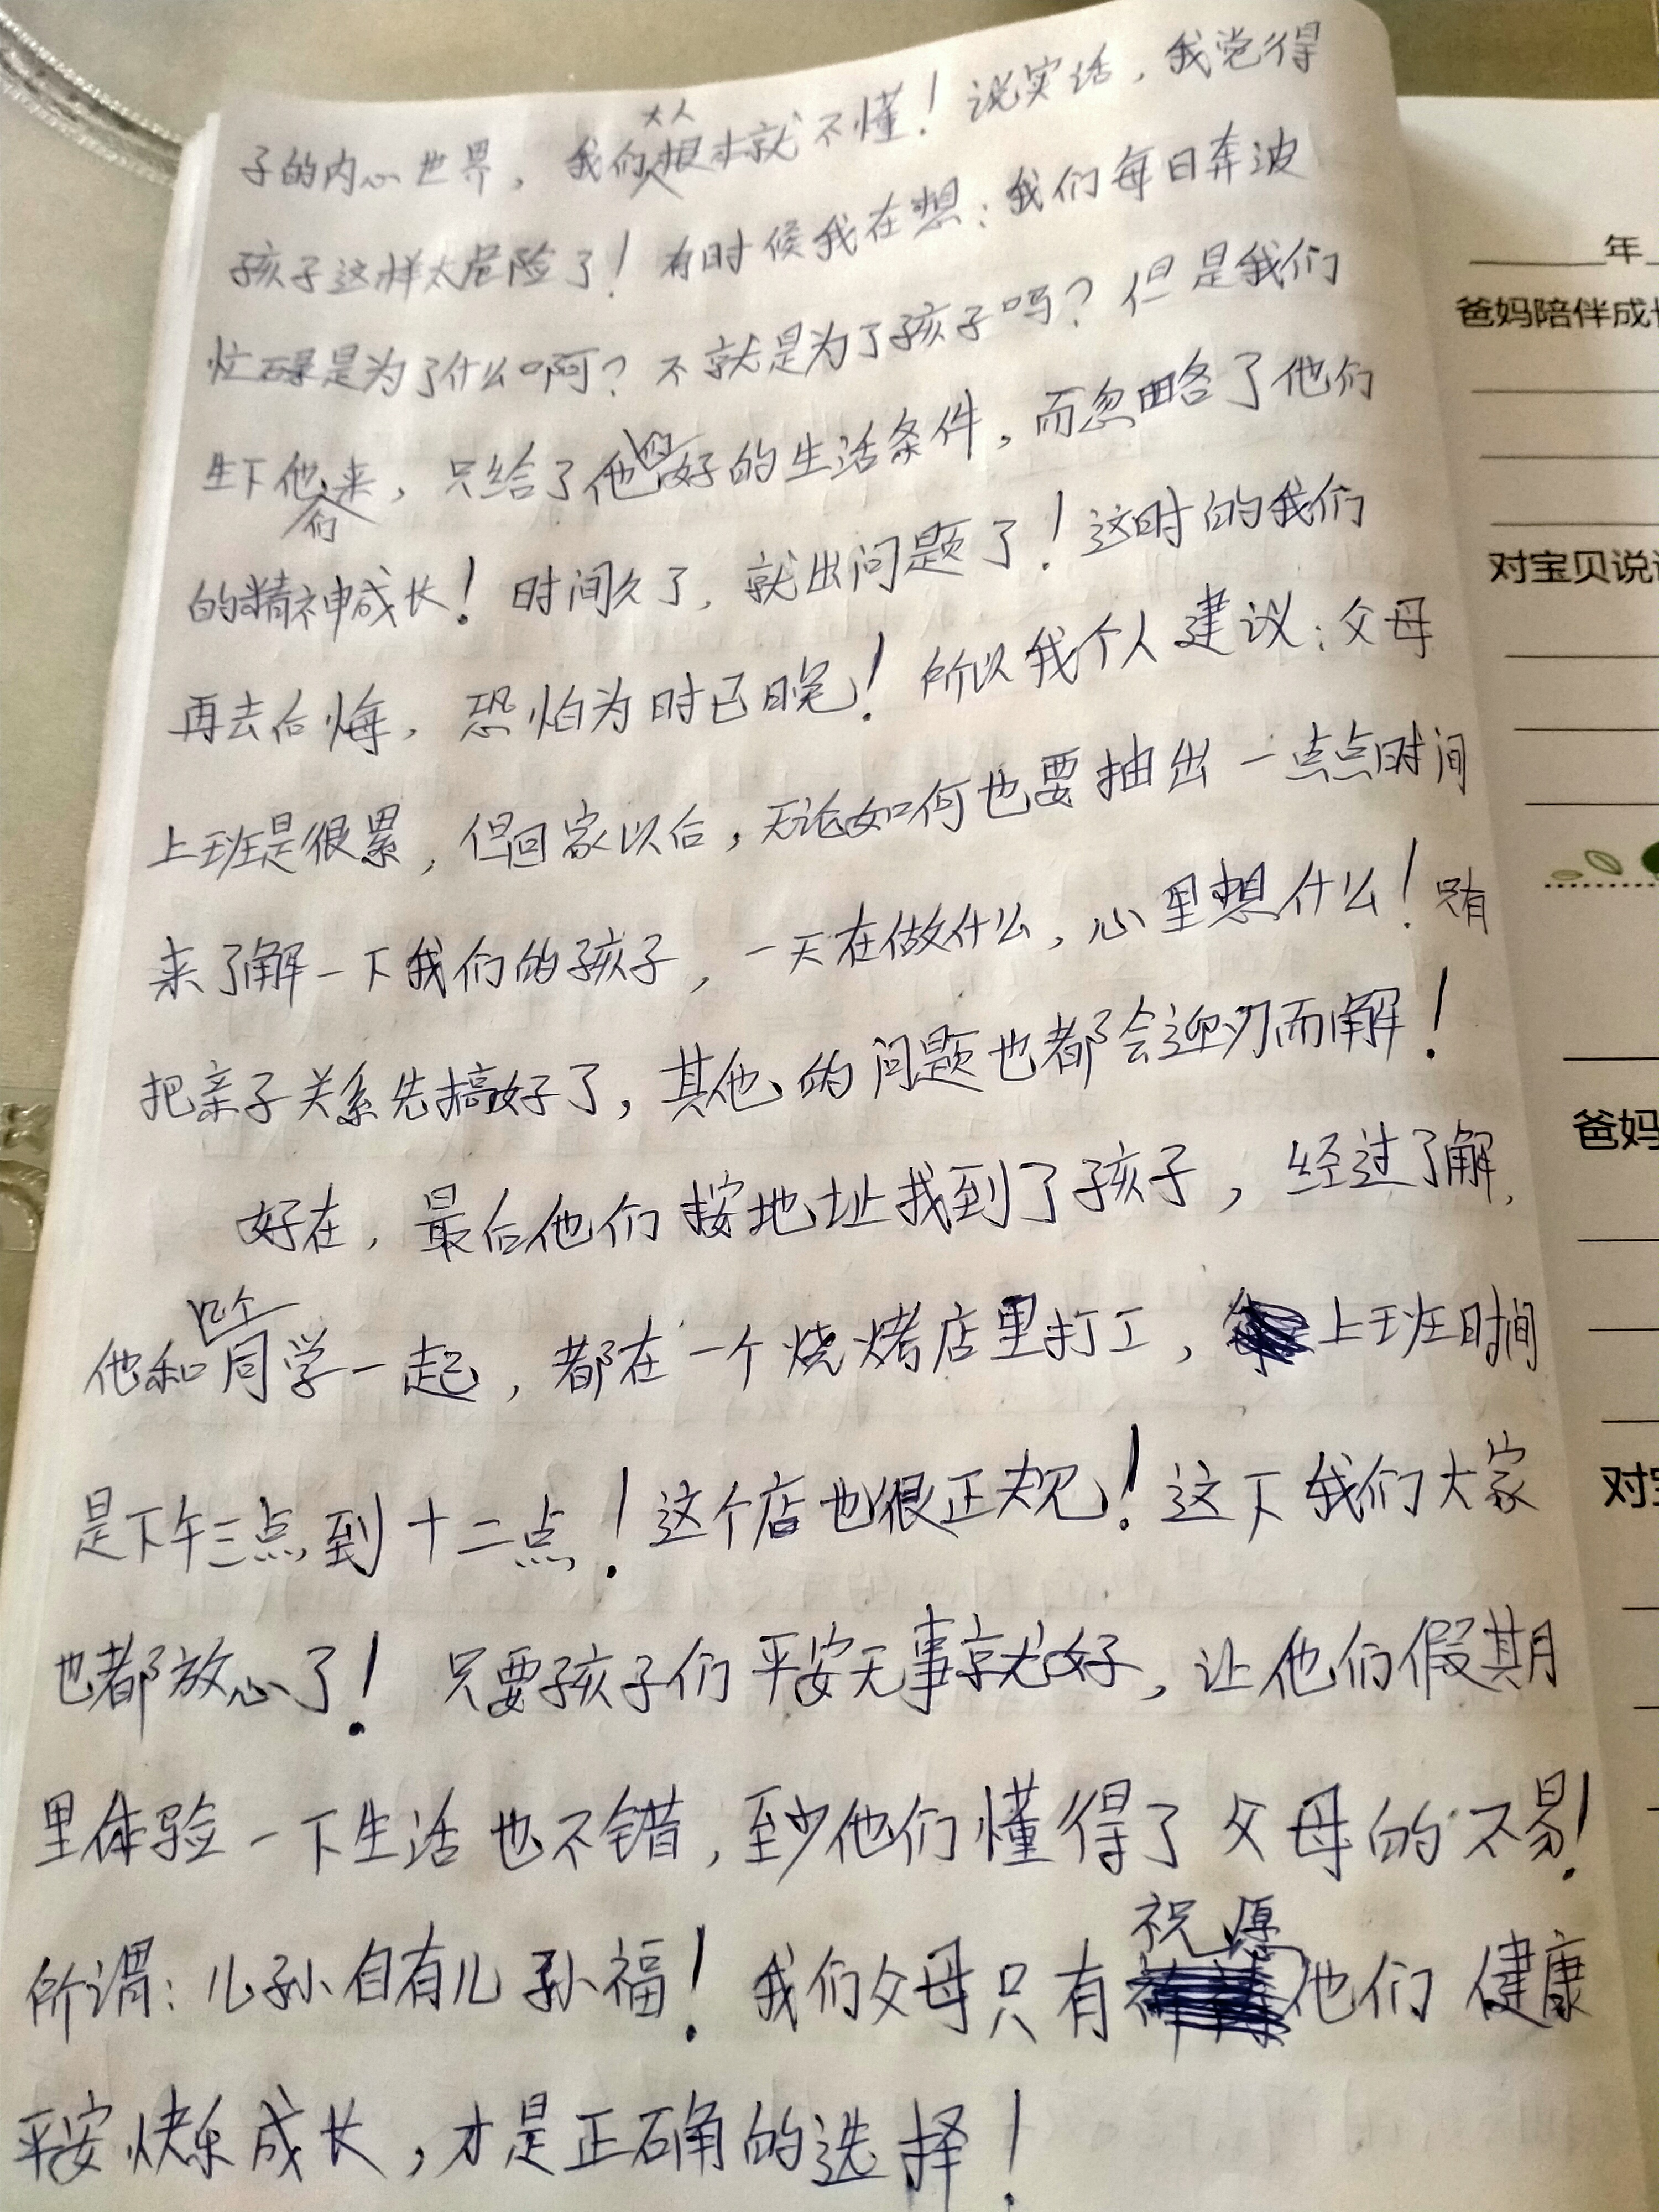 子的内心世界，我们大人根本就不懂！说实话，我觉得
孩子这样太危险了！有时候我在想：我们每日奔波
忙碌是为了什么啊？不就是为了孩子吗？但是我们
生下他们来，只给了他们好的生活条件，而忽略了他们
的精神成长！时间久了，就出问题了！这时的我们
再去后悔，恐怕为时已晚！所以我个人建议：父母
上班是很累，但回家以后，无论如何也要抽出一点点时间
来了解一下我们的孩子，一天在做什么，心里想什么！只有
把亲子关系先搞好了，其他的问题也都会迎刃而解！
好在，最后他们按地址找到了孩子，经过了解，
他和几个同学一起，都在一个烧烤店里打工，上班时间
是下午三点到十二点！这个店也很正规！这下我们大家
也都放心了！只要孩子们平安无事就好，让他们假期
里体验一下生活也不错，至少他们懂得了父母的不易！
所谓：儿孙自有儿孙福！我们父母只有祝愿他们健康
平安快乐成长，才是正确的选择！
年
爸妈陪伴成长
对宝贝说
爸妈
对